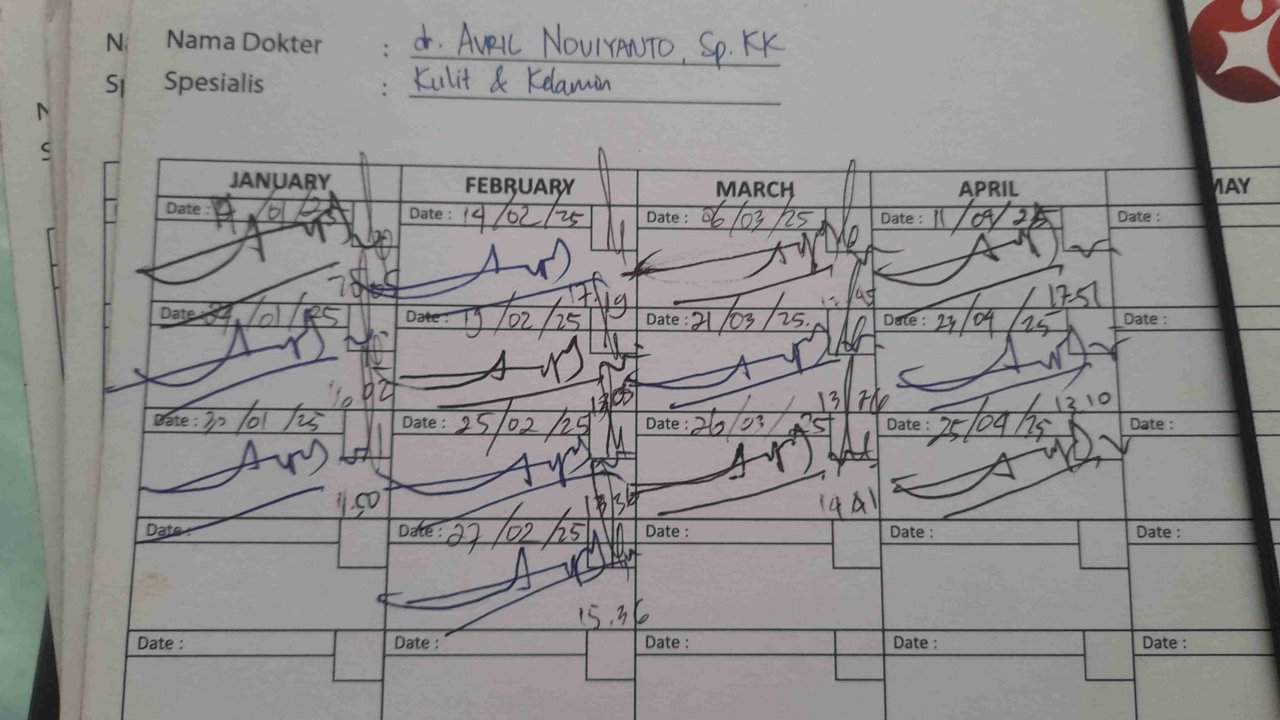 Nama Dokter : dr. AVRIL NOVIYANTO, Sp.KK
Spesialis : Kulit & Kelamin
JANUARY FEBRUARY MARCH APRIL MAY
Date : /01/ Date : 14/02/25 Date : 06/03/25 Date : 11/04/25 Date :
17.19 17.51
Date : /01/25 Date : 13/02/25 Date : 21/03/25 Date : 23/04/25 Date :
13 13.10
Date : 30/01/25 Date : 25/02/25 Date : 26/03/25 Date : 25/04/25 Date :
11.50 13.36 14.41
Date : Date : 27/02/25 Date : Date : Date :
15.36
Date : Date : Date : Date : Date :